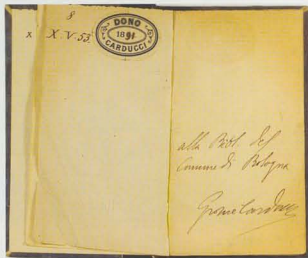 8
x X.V.53.
DONO
1891
CARDUCCI
alla Bibl. del
Comune di Bologna
Giosue Carducci